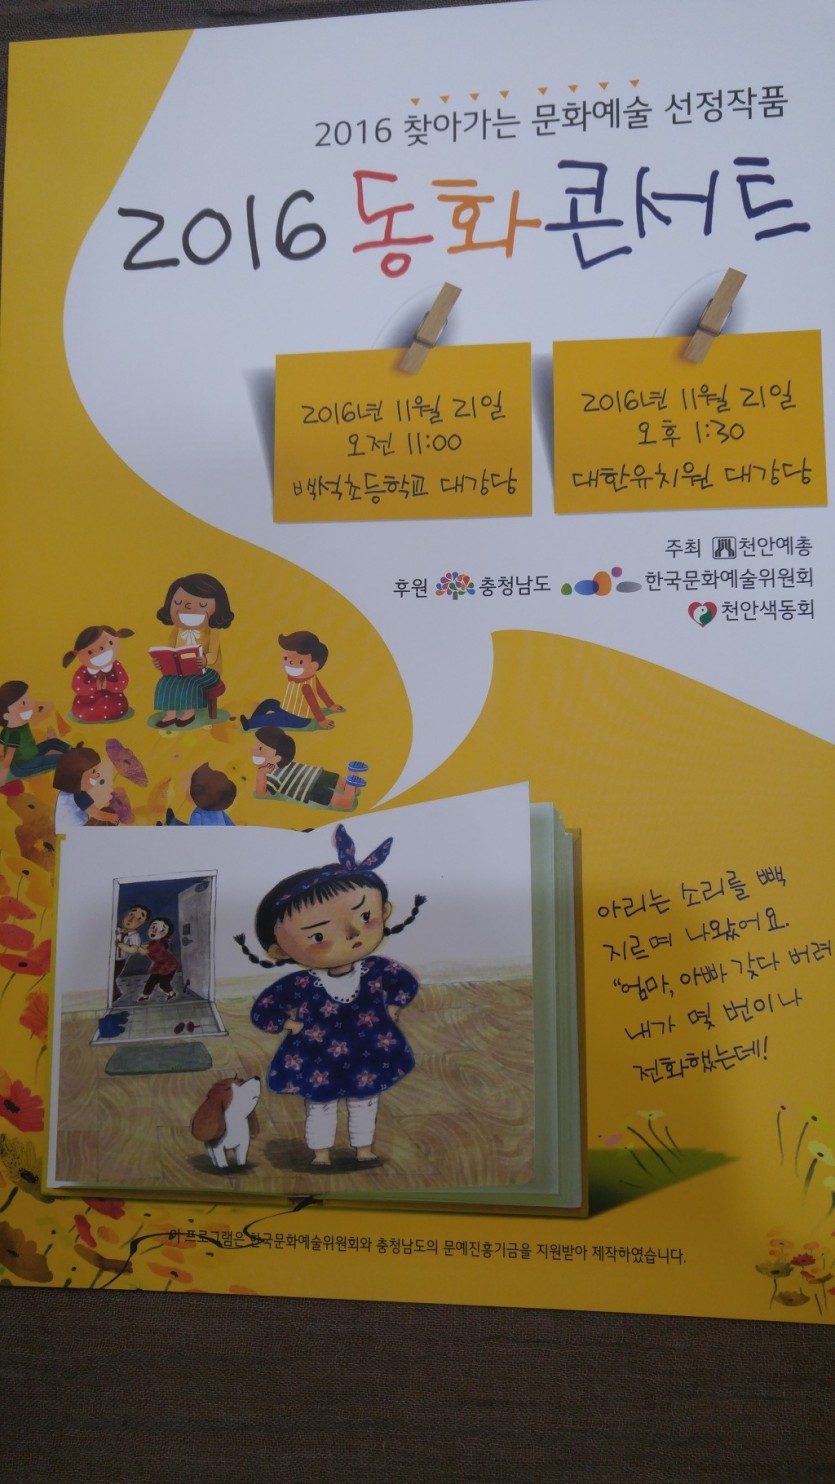 2016 찾아가는 문화예술 선정작품
2016 동화콘서트
2016년 11월 21일
오전 11:00
백석초등학교 대강당
2016년 11월 21일
오후 1:30
대한유치원 대강당
주최 천안예총
후원 충청남도 한국문화예술위원회
천안색동회
아리는 소리를 빽
지르며 나왔어요.
"엄마, 아빠 갖다 버려
내가 몇 번이나
전화했는데!
이 프로그램은 한국문화예술위원회와 충청남도의 문예진흥기금을 지원받아 제작하였습니다.